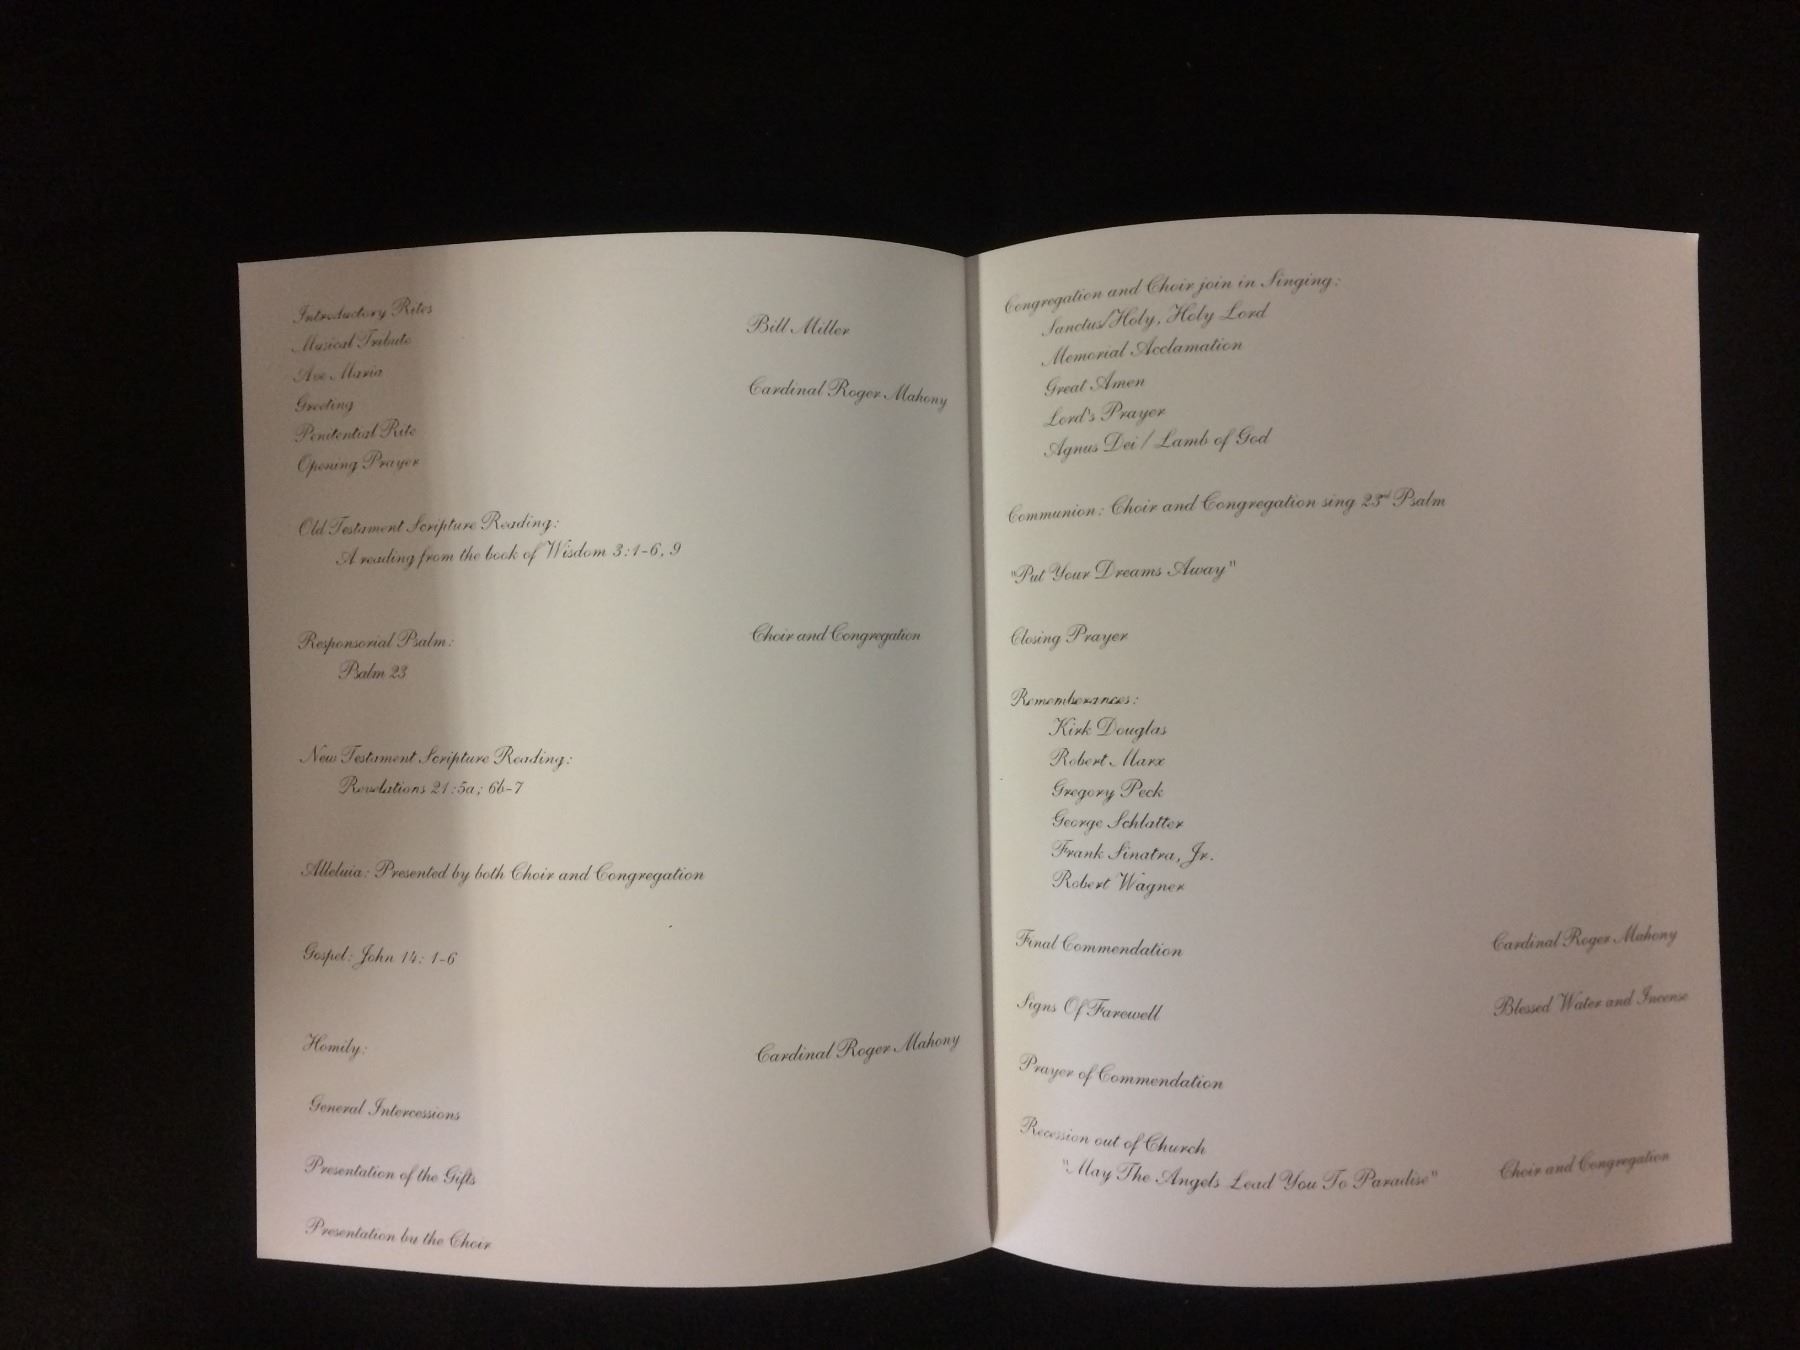 Introductory Rites
Musical Tribute
Bill Miller
Ave Maria
Greeting
Cardinal Roger Mahony
Penitential Rite
Opening Prayer
Old Testament Scripture Reading:
A reading from the book of Wisdom 3:1-6, 9
Responsorial Psalm:
Choir and Congregation
Psalm 23
New Testament Scripture Reading:
Revelations 21:5a; 6b-7
Alleluia: Presented by both Choir and Congregation
Gospel: John 14: 1-6
Homily:
Cardinal Roger Mahony
General Intercessions
Presentation of the Gifts
Presentation by the Choir
Congregation and Choir join in Singing:
Sanctus/Holy, Holy Lord
Memorial Acclamation
Great Amen
Lord's Prayer
Agnus Dei / Lamb of God
Communion: Choir and Congregation sing 23rd Psalm
"Put Your Dreams Away"
Closing Prayer
Rememberances:
Kirk Douglas
Robert Marx
Gregory Peck
George Schlatter
Frank Sinatra, Jr.
Robert Wagner
Final Commendation
Cardinal Roger Mahony
Signs Of Farewell
Blessed Water and Incense
Prayer of Commendation
Recession out of Church
"May The Angels Lead You To Paradise"
Choir and Congregation